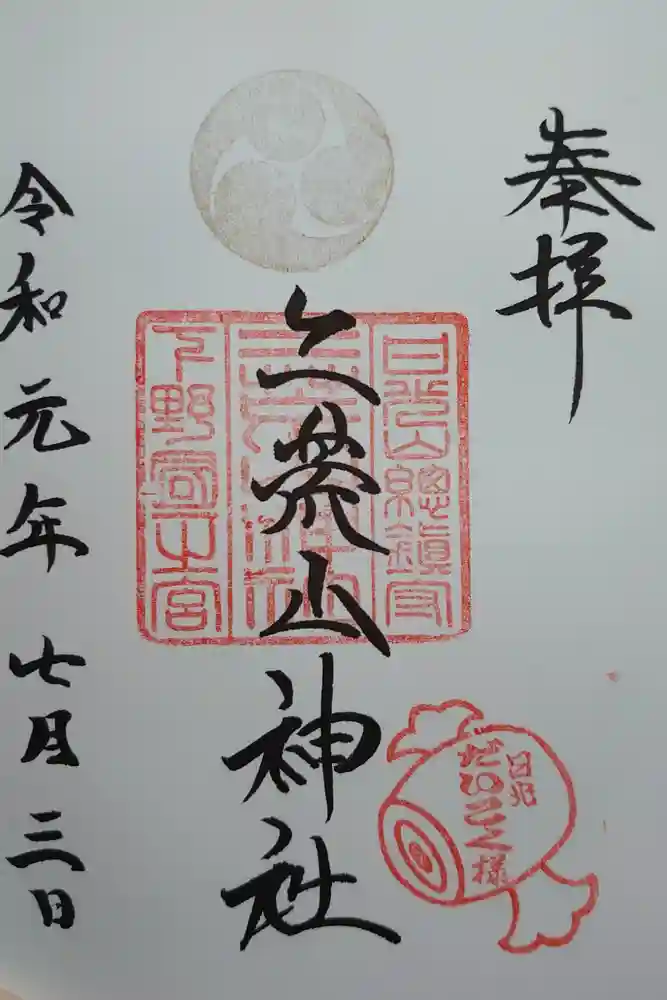 奉拝
二荒山神社
日光山總鎮守
二荒山神社
下野國一宮
日光
だいこく様
令和元年七月三日